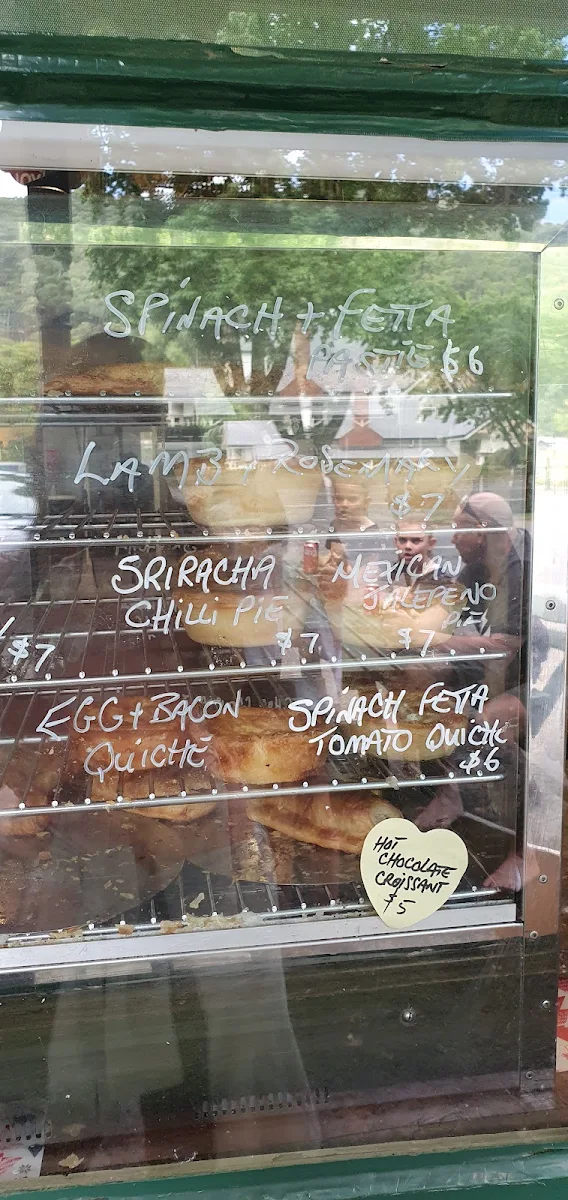 SPINACH + FETTA
PASTIE $6
LAMB + ROSEMARY
$7
SRIRACHA
CHILLI PIE
$7
MEXICAN
JALEPENO
PIE
$7
$7
EGG + BACON
QUICHE
SPINACH FETTA
TOMATO QUICHE
$6
HOT
CHOCOLATE
CROISSANT
$5